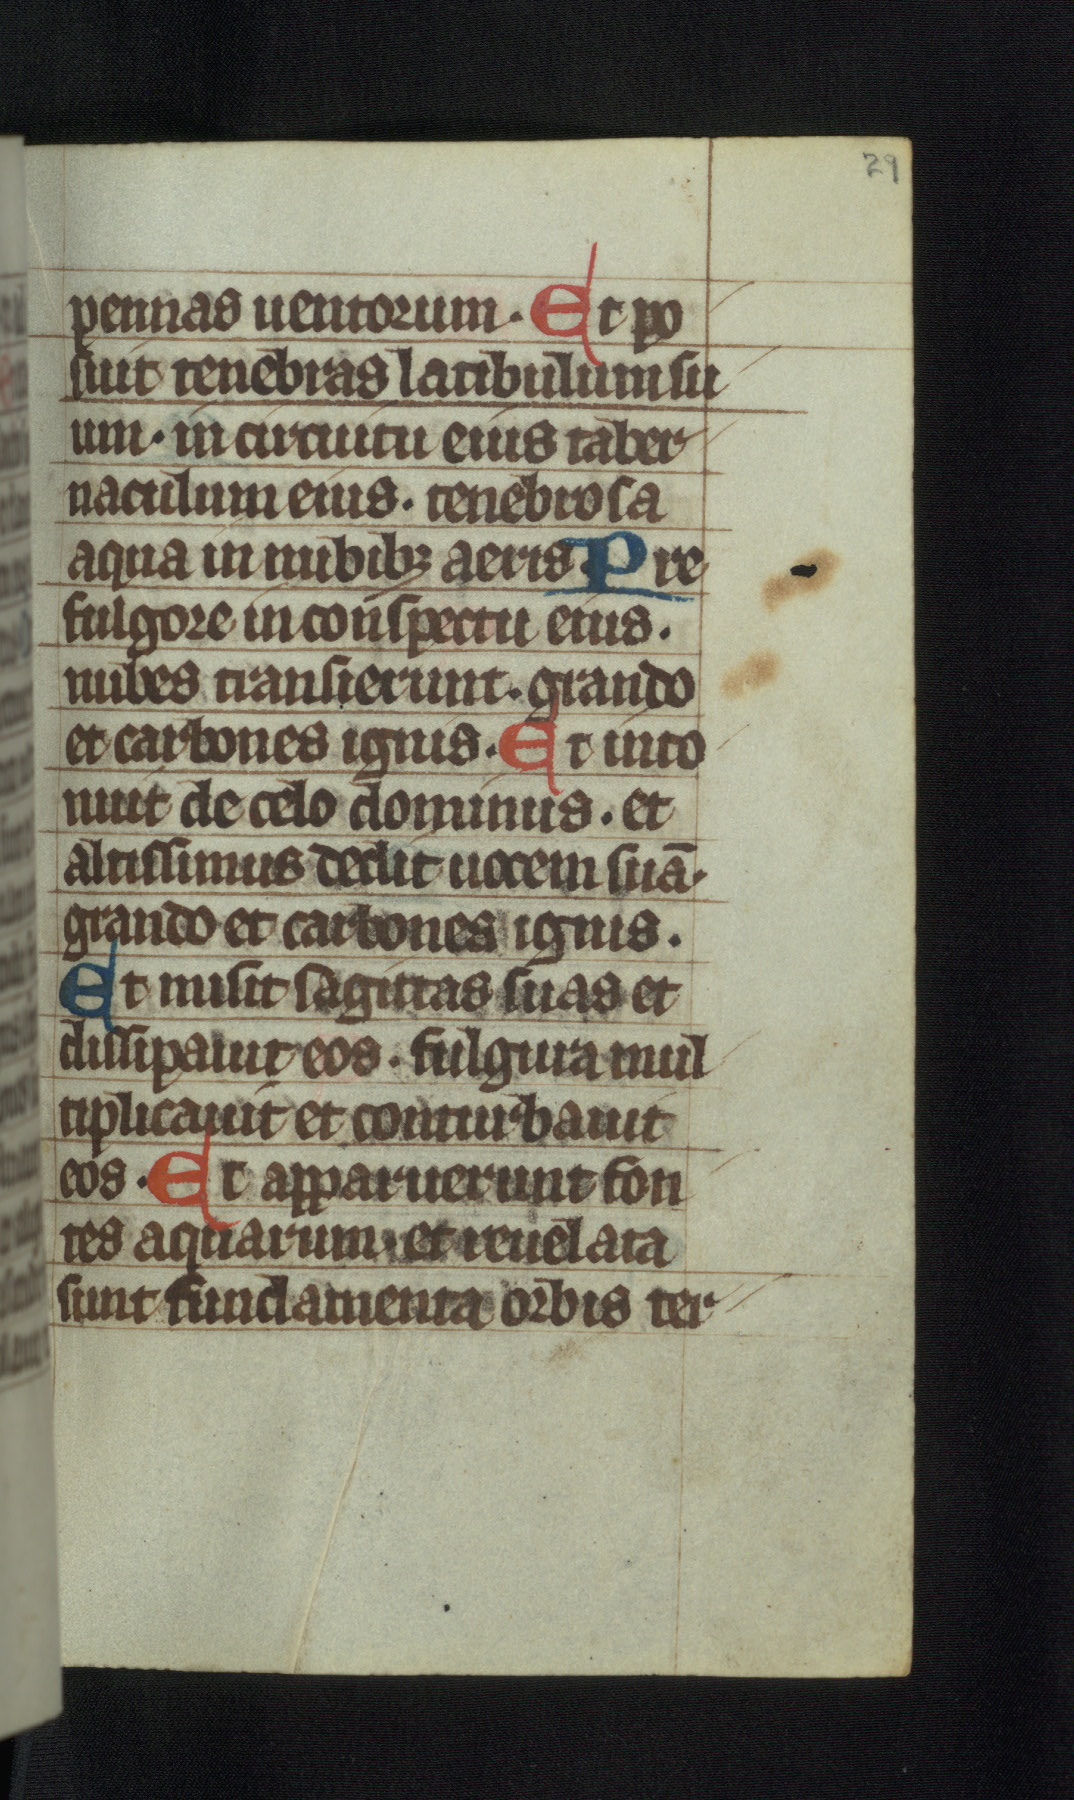 29
pennas uentorum · Et po
suit tenebras latibulum su
um · in circuitu eius taber
naculum eius · tenebrosa
aqua in nubibꝫ aeris · Pre
fulgore in conspectu eius ·
nubes transierunt · grando
et carbones ignis · Et into
nuit de celo dominus · et
altissimus dedit uocem suā ·
grando et carbones ignis ·
Et misit sagittas suas et
dissipauit eos · fulgura mul
tiplicauit et conturbauit
eos · Et apparuerunt fon
tes aquarum · et reuelata
sunt fundamenta orbis ter